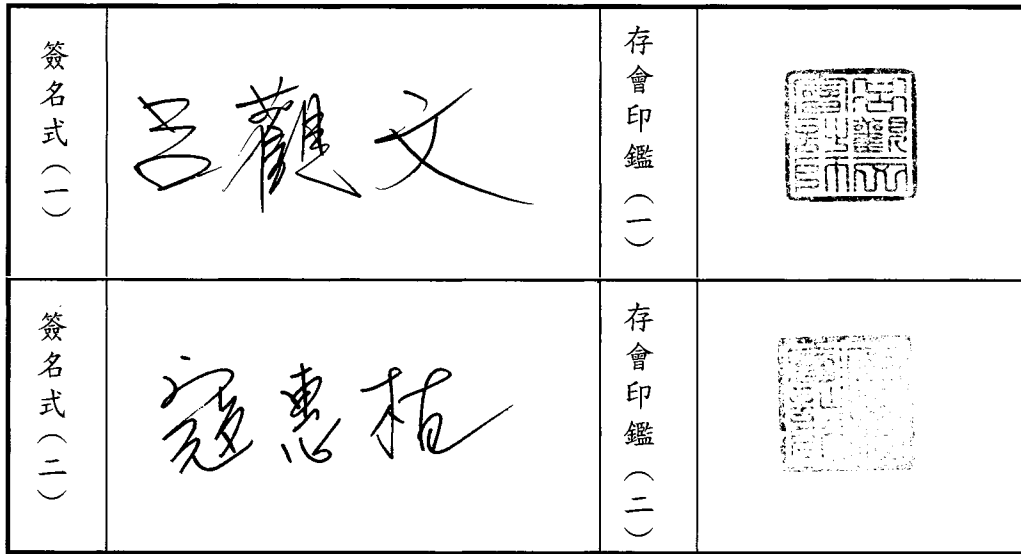 簽名式（一）
呂觀文
存會印鑑（一）
簽名式（二）
寇惠植
存會印鑑（二）